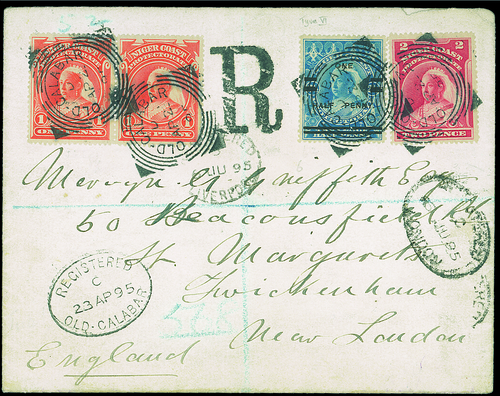 Type VI
NIGER COAST
PROTECTORATE
ONE PENNY
NIGER COAST
PROTECTORATE
ONE PENNY
R
HALF PENNY
2 2
NIGER COAST
PROTECTORATE
TWO PENCE
OLD CALABAR
REGISTERED
JU 95
LIVERPOOL
Griffith
50 Beaconsfield Rd
St Margarets
Twickenham
Near London
England
REGISTERED
C
23 AP 95
OLD-CALABAR
JU 95